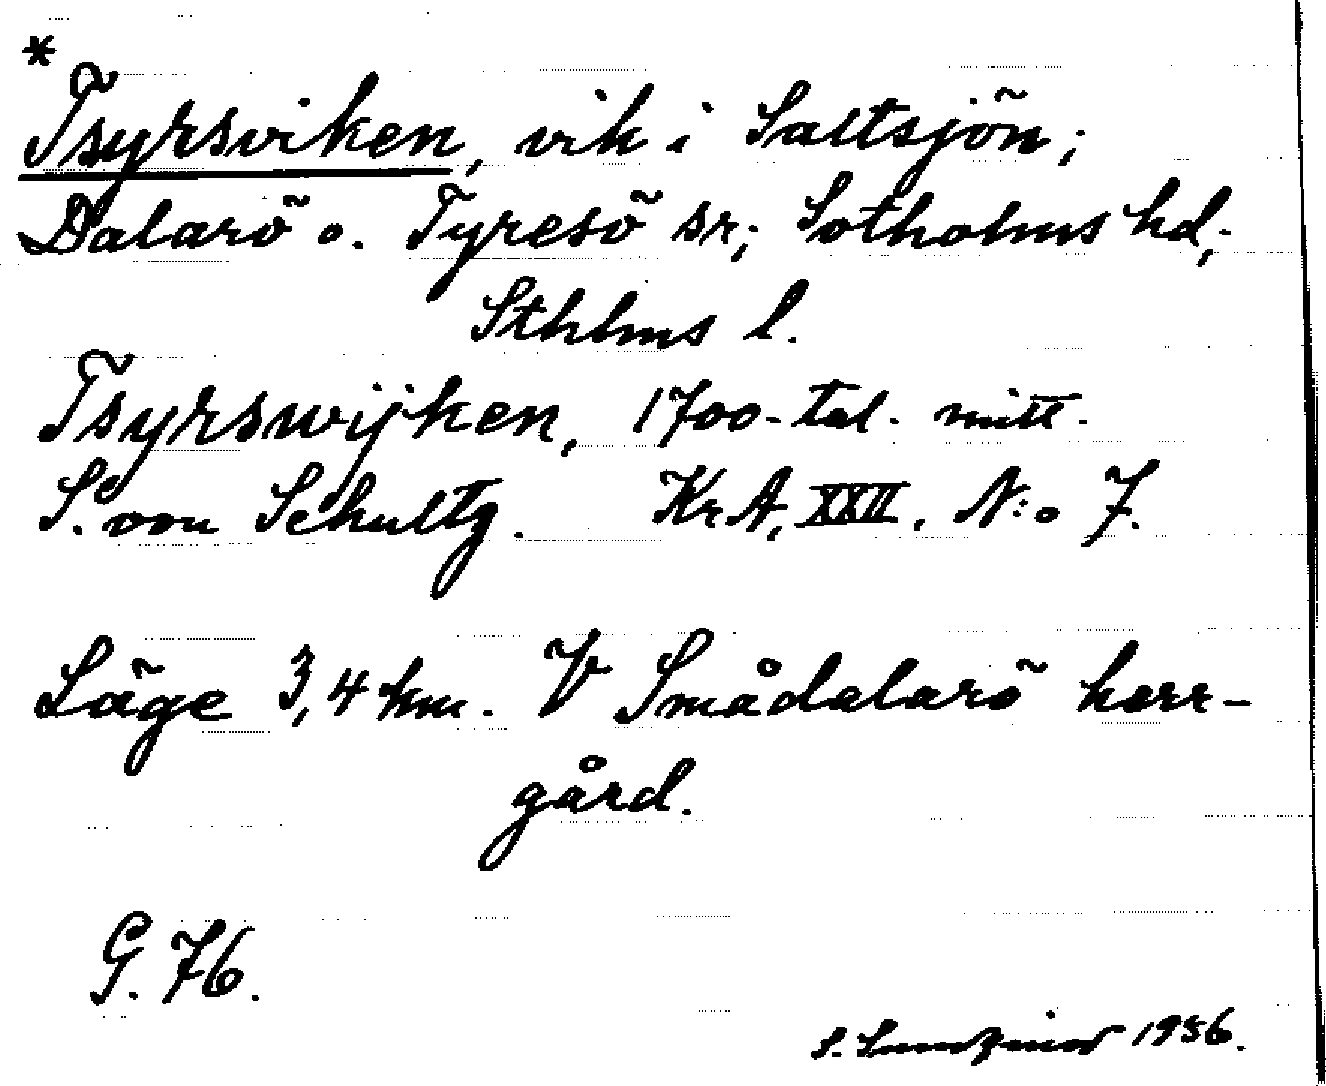 *
Tsyrsviken, vik i Saltsjön;
Dalarö o. Tyresö sr; Sotholms hd;
Sthlms l.
Tsyrswijken, 1700-tal. mitt.
S. von Schultz. KrA, XXII. N:o 7.
Läge 3,4 km. V Smådalarö herr-
gård.
G. 76.
S. 1956.